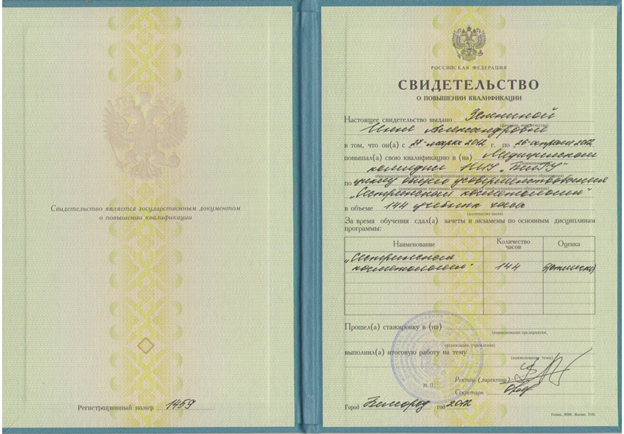 Свидетельство является государственным документом
о повышении квалификации
Регистрационный номер 1459
РОССИЙСКАЯ ФЕДЕРАЦИЯ
СВИДЕТЕЛЬСТВО
О ПОВЫШЕНИИ КВАЛИФИКАЦИИ
Настоящее свидетельство выдано
Александровне
в том, что он(а) с марта 2012 г. по 26 апреля 2012
повышал(а) свою квалификацию в (на) Медицинском
колледже НИУ "БелГУ"
по циклу общего усовершенствования
"Сестринская косметология"
в объеме 144 учебных часа
За время обучения сдал(а) зачеты и экзамены по основным дисциплинам
программы:
Наименование Количество часов Оценка
"Сестринская
косметология" 144
Прошел(а) стажировку в (на)
выполнил(а) итоговую работу на тему
Ректор (директор)
М. П.
Секретарь
Город Белгород год 2012